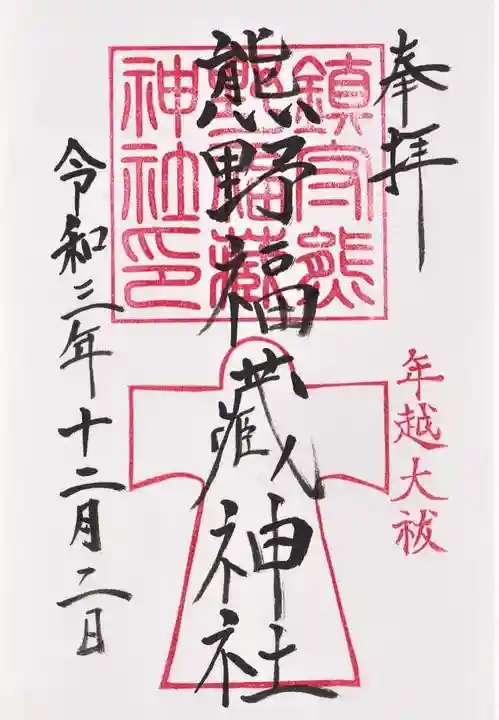 奉拝
年越大祓
鎮守熊
野福藏
神社印
熊野福藏神社
令和三年十二月二日